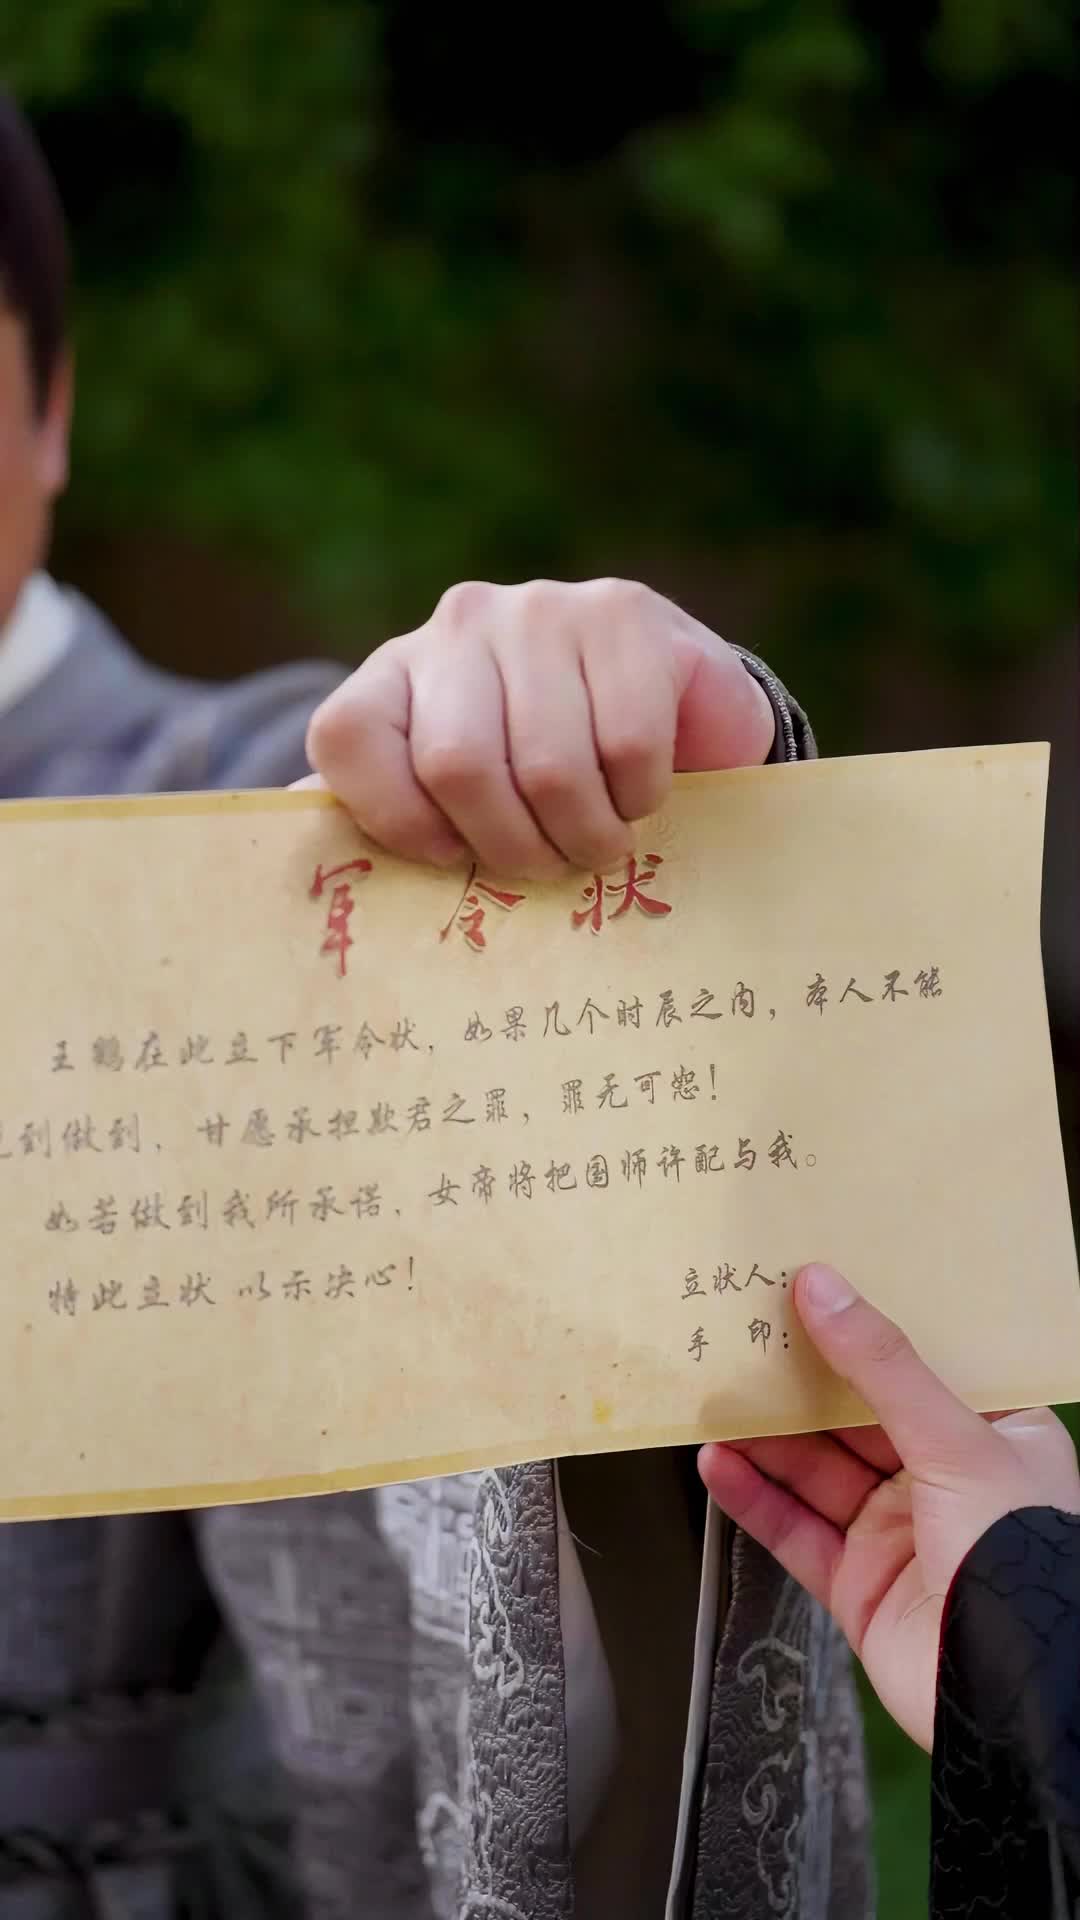 军令状
王鹤在此立下军令状，如果几个时辰之内，本人不能
说到做到，甘愿承担欺君之罪，罪无可恕！
如若做到我所承诺，女帝将把国师许配与我。
特此立状 以示决心！
立状人：
手 印：